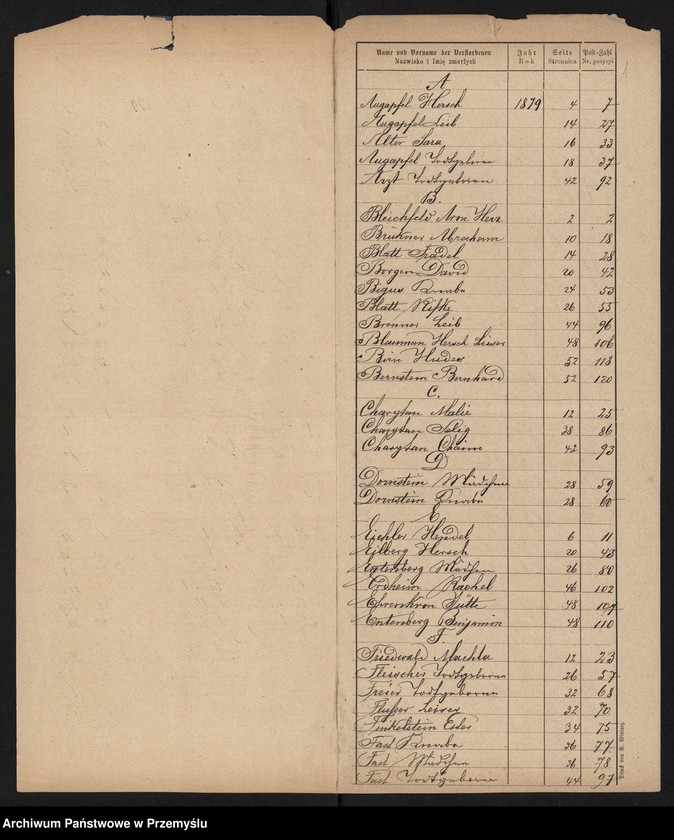 Name und Vorname der Verstorbenen Jahr Seite Post-Zahl
Nazwisko i Imię zmarłych Rok Stronnica Nr. pozycyi
1
A
Augapfel Hersch 1879 4 7
Augapfel Leib 14 27
Alter Sara 16 33
Augapfel Todtgeboren 18 37
Arzt Todtgeboren 42 92
B.
Bleichfeld Aron Herz 2 2
Brükner Abraham 10 18
Blatt Fradel 14 28
Borgen David 20 42
Bigus Knabe 24 53
Blatt Rifke 26 55
Brenner Leib 44 96
Blauman Hersch Leiser 48 106
Birn 52 118
Bernstein Bernhard 52 120
C.
Charytan Malie 12 25
Charytan Selig 38 86
Charytan Chaim 42 93
D
Dornstein Mädchen 28 59
Dornstein Knabe 28 60
E
Eichler Hendel 6 11
Eilberg Hersch 20 43
Mädchen 26 80
Rachel 46 102
Ehrenkron Jütte 48 107
Entenberg Benjamin 48 110
F.
Friedwald Machla 12 23
Fleischer Todtgeboren 26 57
Freier Todtgeboren 32 68
Flusser Leiser 32 70
Finkelstein Ester 34 75
Fast Knabe 36 77
Fast Mädchen 36 78
Fast Todtgeboren 44 97
Archiwum Państwowe w Przemyślu